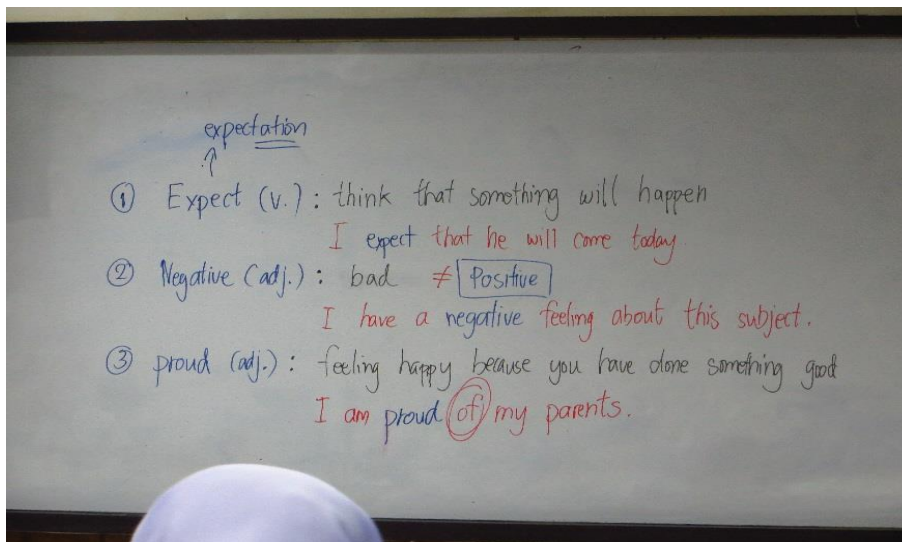 expectation
① Expect (v.) : think that something will happen
I expect that he will come today.
② Negative (adj.) : bad ≠ Positive
I have a negative feeling about this subject.
③ proud (adj.) : feeling happy because you have done something good
I am proud of my parents.